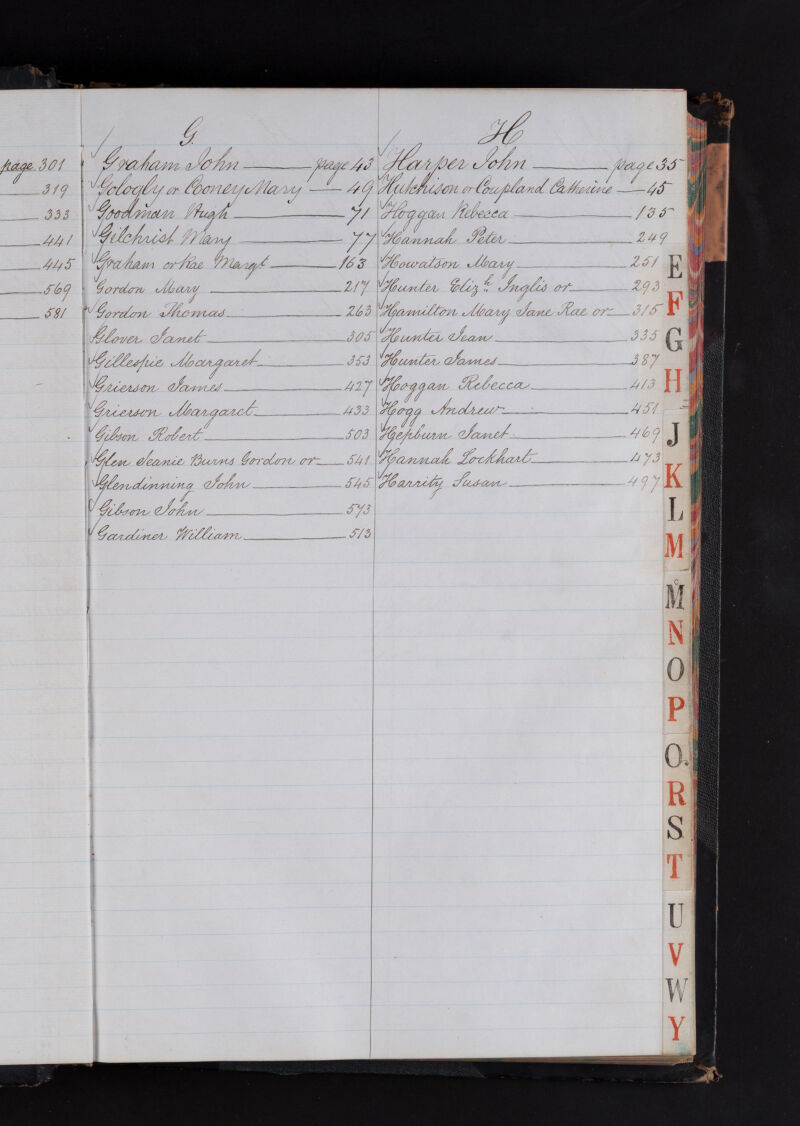 page 301
319
333
441
445
569
581
G.
Graham John page 43
Gologly or Cooney Mary 49
Goodman Hugh 71
Gilchrist Mary 77
Graham or Rae Margt 163
Gordon Mary 217
Gordon Thomas 263
Glover Janet 305
Gillespie Margaret 353
Grierson James 427
Grierson Margaret 433
Gibson Robert 503
Glen Jeanie Burns Gordon or 541
Glendinning John 545
Gibson John 573
Gardiner William 513
H
Harper John page 35
Hutchison or Coupland Catherine 45
Hoggan Rebecca 135
Hannah Peter 249
Howatson Mary 251
Hunter Elizh Inglis or 293
Hamilton Mary Jane Rae or 315
Hunter Jean 335
Hunter James 387
Hoggan Rebecca 413
Hogg Andrew 451
Hepburn Janet 469
Hannah Lockhart 473
Harrity Susan 497
E
F
G
H
J
K
L
M
Mc
N
O
P
Q.
R
S
T
U
V
W
Y